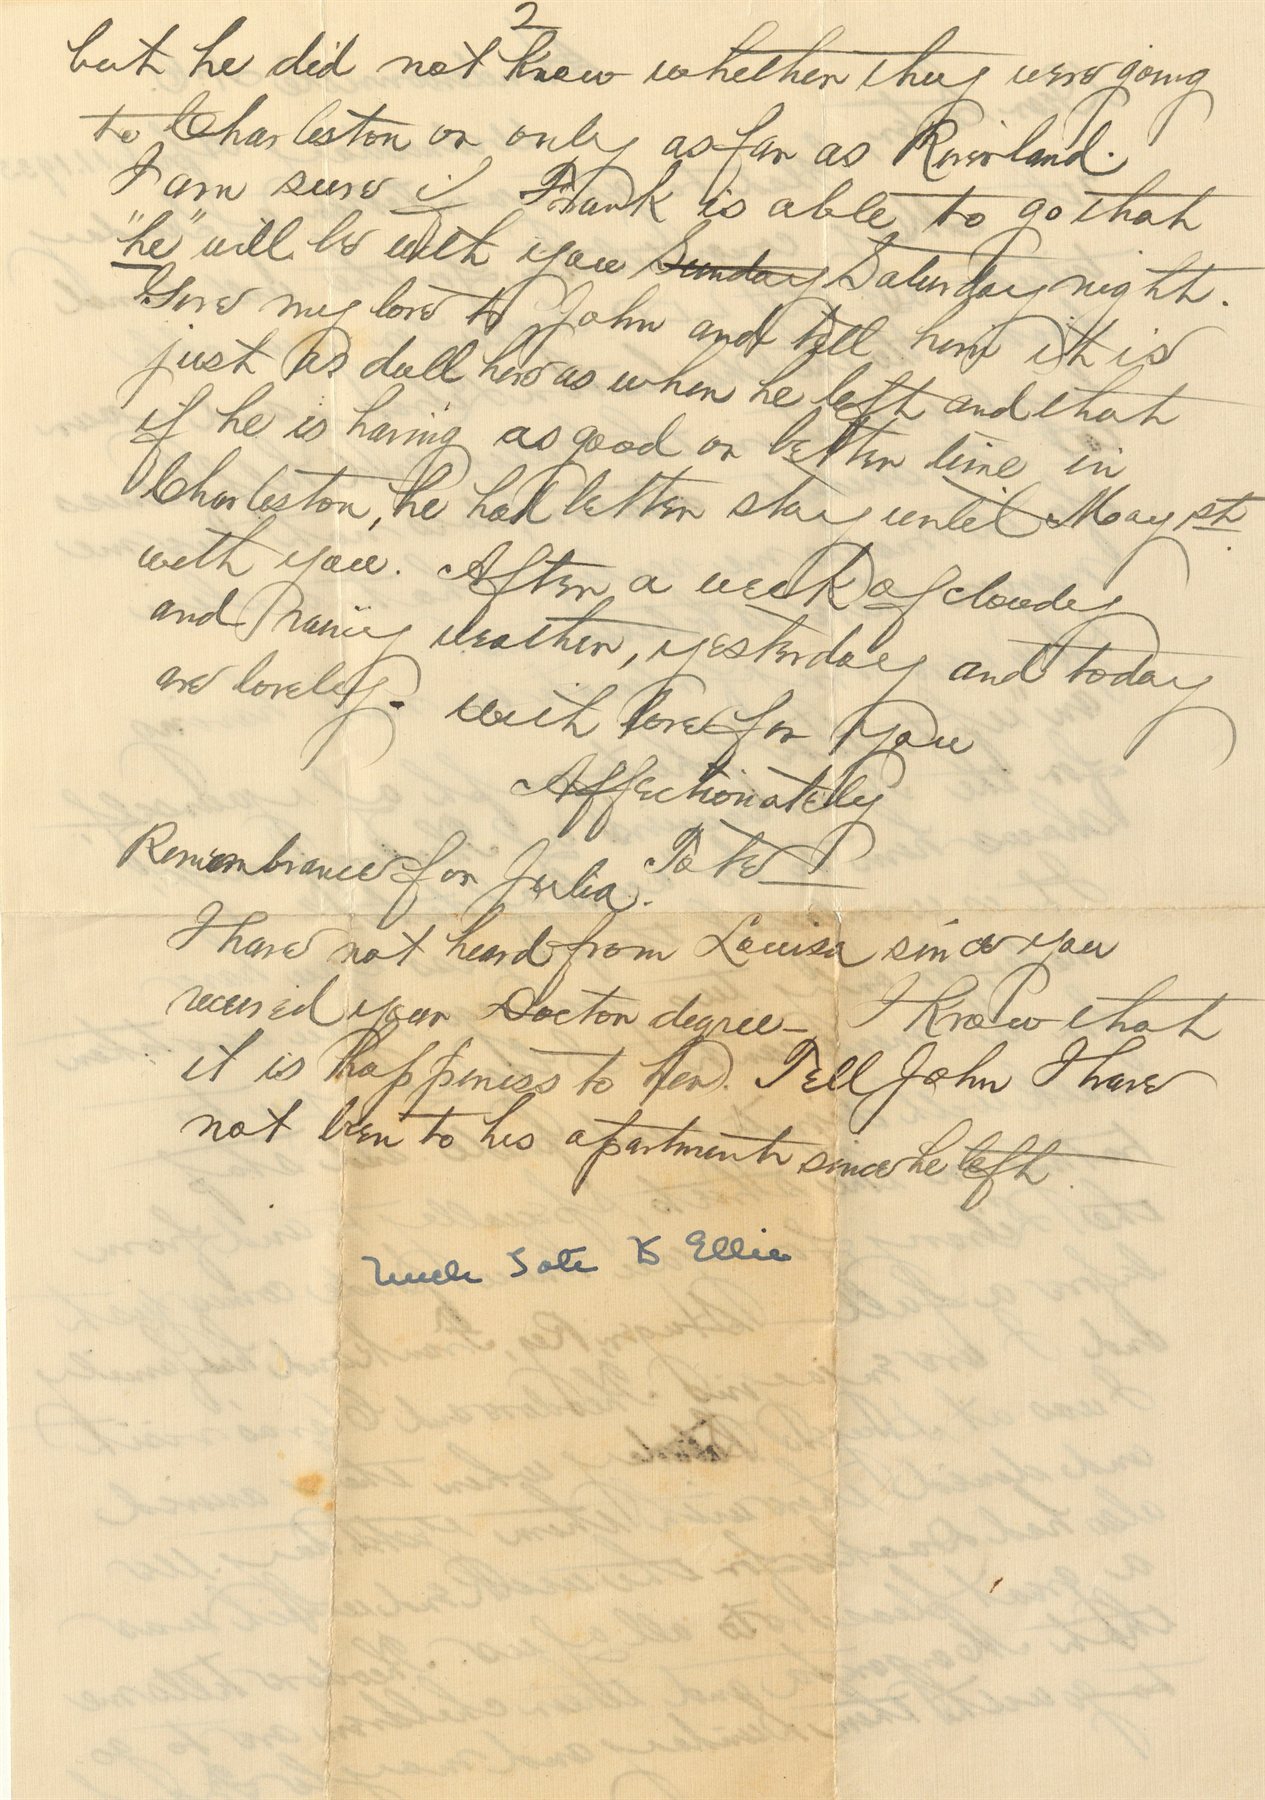 2
but he did not know whether they were going
to Charleston or only as far as Riverland.
I am sure if Frank is able to go that
"he" will be with you Sunday Saturday night.
Give my love to John and tell him it is
just as dull here as when he left and that
if he is having as good or better time in
Charleston, he had better stay until May 1st
with you. After a week of cloudy
and rainy weather, yesterday and today
are lovely. With love for you
Affectionately
Tate
Remembrances for Julia.
I have not heard from Louisa since you
received your Doctor degree - I know that
it is happiness to her. Tell John I have
not been to his apartment since he left
Uncle Tate to Ellie